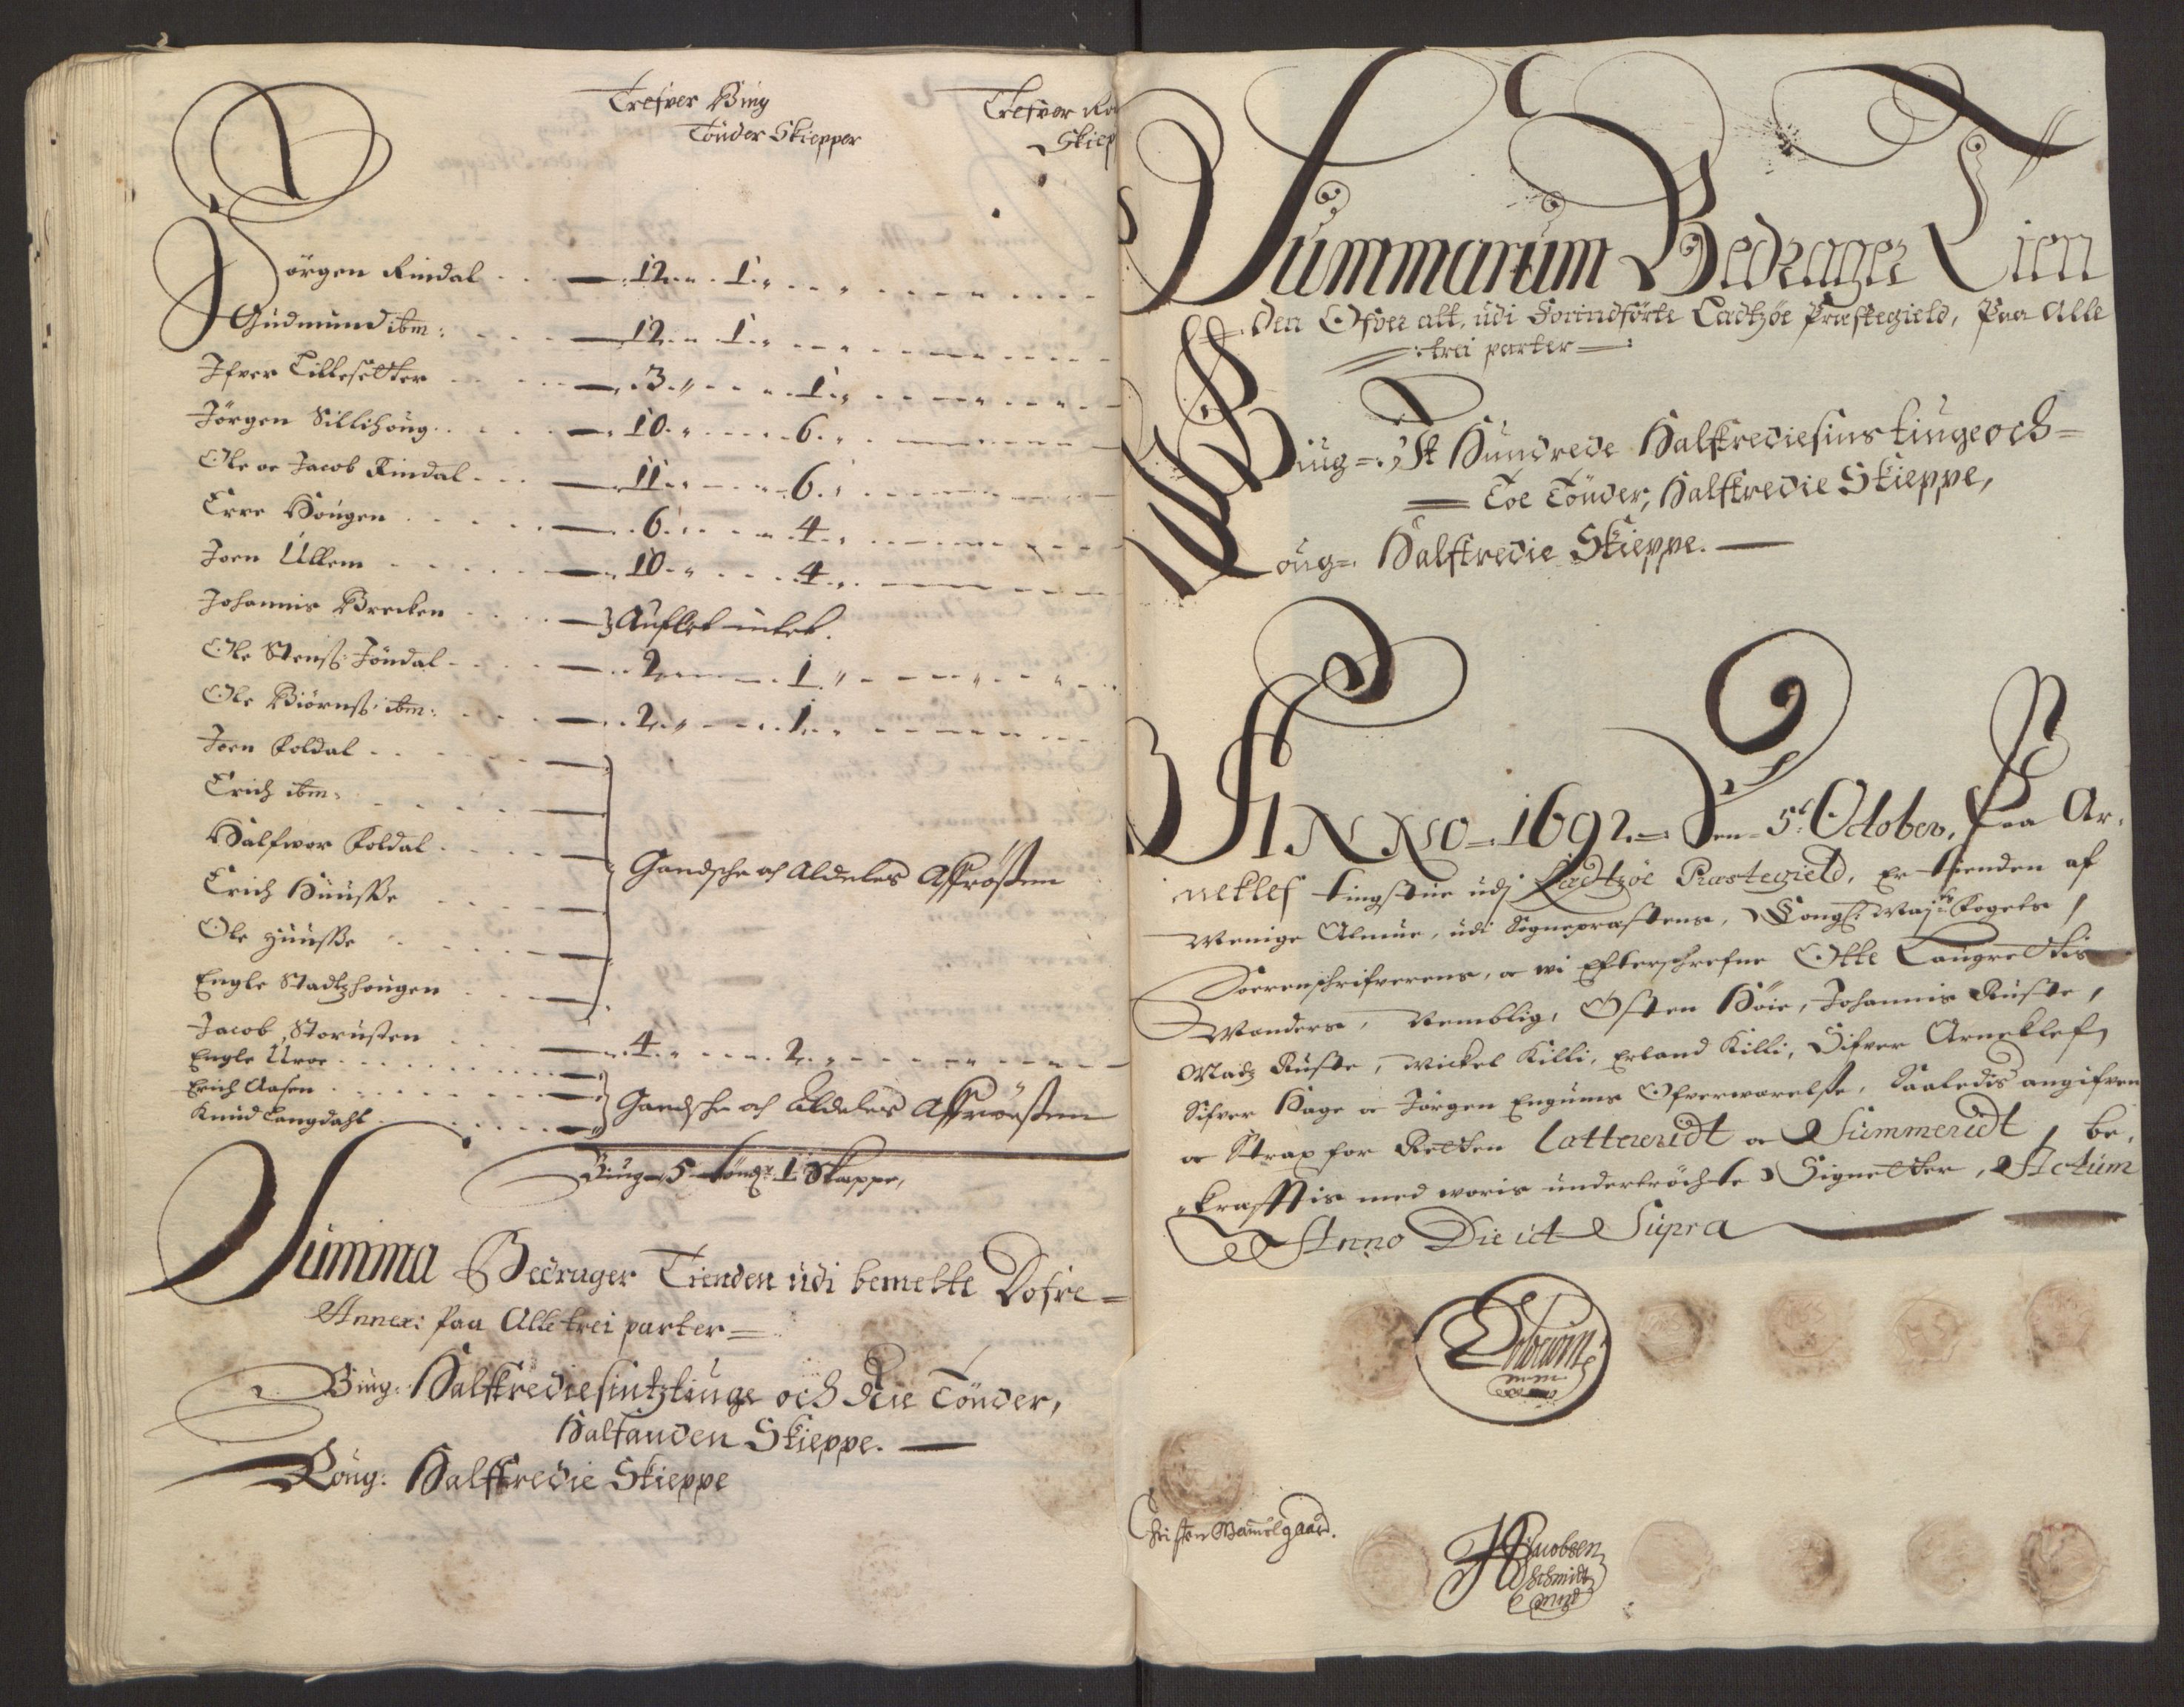 Trefver Biug
Tönder Skiepper
Trefver Ro
Skiep
Jörgen Rindal 12 1
Gudmund ibm: 12 1
Ifver Lillesetter 3 1
Jörgen Sillihoug 10 6
Ole oc Jacob Rindal 11 6
Erre Hougen 6 4
Joen Ullem 10 4
Johannis Brecken Aufled intet.
Ole Stenss: Jöndal 2 1
Ole Biörnss: ibm: 2 1
Joen Foldal
Erich ibm:
Halfwor Foldal
Erich Huusse
Gandsche och Aldeles Affrössen
Ole Huusse
Engle Stadtzhougen
Jacob Storusten 4 2
Engle Uroe
Erich Aasen
Gandsche och Aldeles Affröessen
Knud Langdahl
Biug 5 tönd: 1 Skieppe,
Summa Bedrager Tienden udi bemelte Dofre=
Annex: paa Alle trei parter=
Biug: Halftrediesintztiuge och Trei Tönder,
Halfanden Skieppe.
Roug: Halftredie Skieppe
Summarum Bedrager Tien
den Ofver alt, udi Forindförte Ladtzöe Præstegield, Paa Alle
trei parter
Biug= It Hundrede Halftrediesins tiuge och=
Toe Tönder, Halftredie Skieppe,
Roug= Halftredie Skieppe.
ANNO=1692= Den 5t October, Paa Ar=
neklef tingstue udj Ladtzöe Præstegield, er tienden af
Menige Almue, udi Sognepræstens, Kongl: Maj:ts Fogets,
Sorenschrifverens, oc wi Efterschrefne Otte Laugrettis
Manders, Nemblig, Östen Höie, Johannis Russte,
Madz Russte, Mickel Killi, Erland Killi, Sifver Arneklef,
Sifver Hage oc Jörgen Engums Ofverwarelsse, Saaledis angifven
oc Strax for Retten Latterert oc Summerert, be=
kræfftis med woris undertröchte Signetter, Actum
Anno Die ut Supra
Christen Bamelgaard.
Jacobsen
Schmidt
mpp